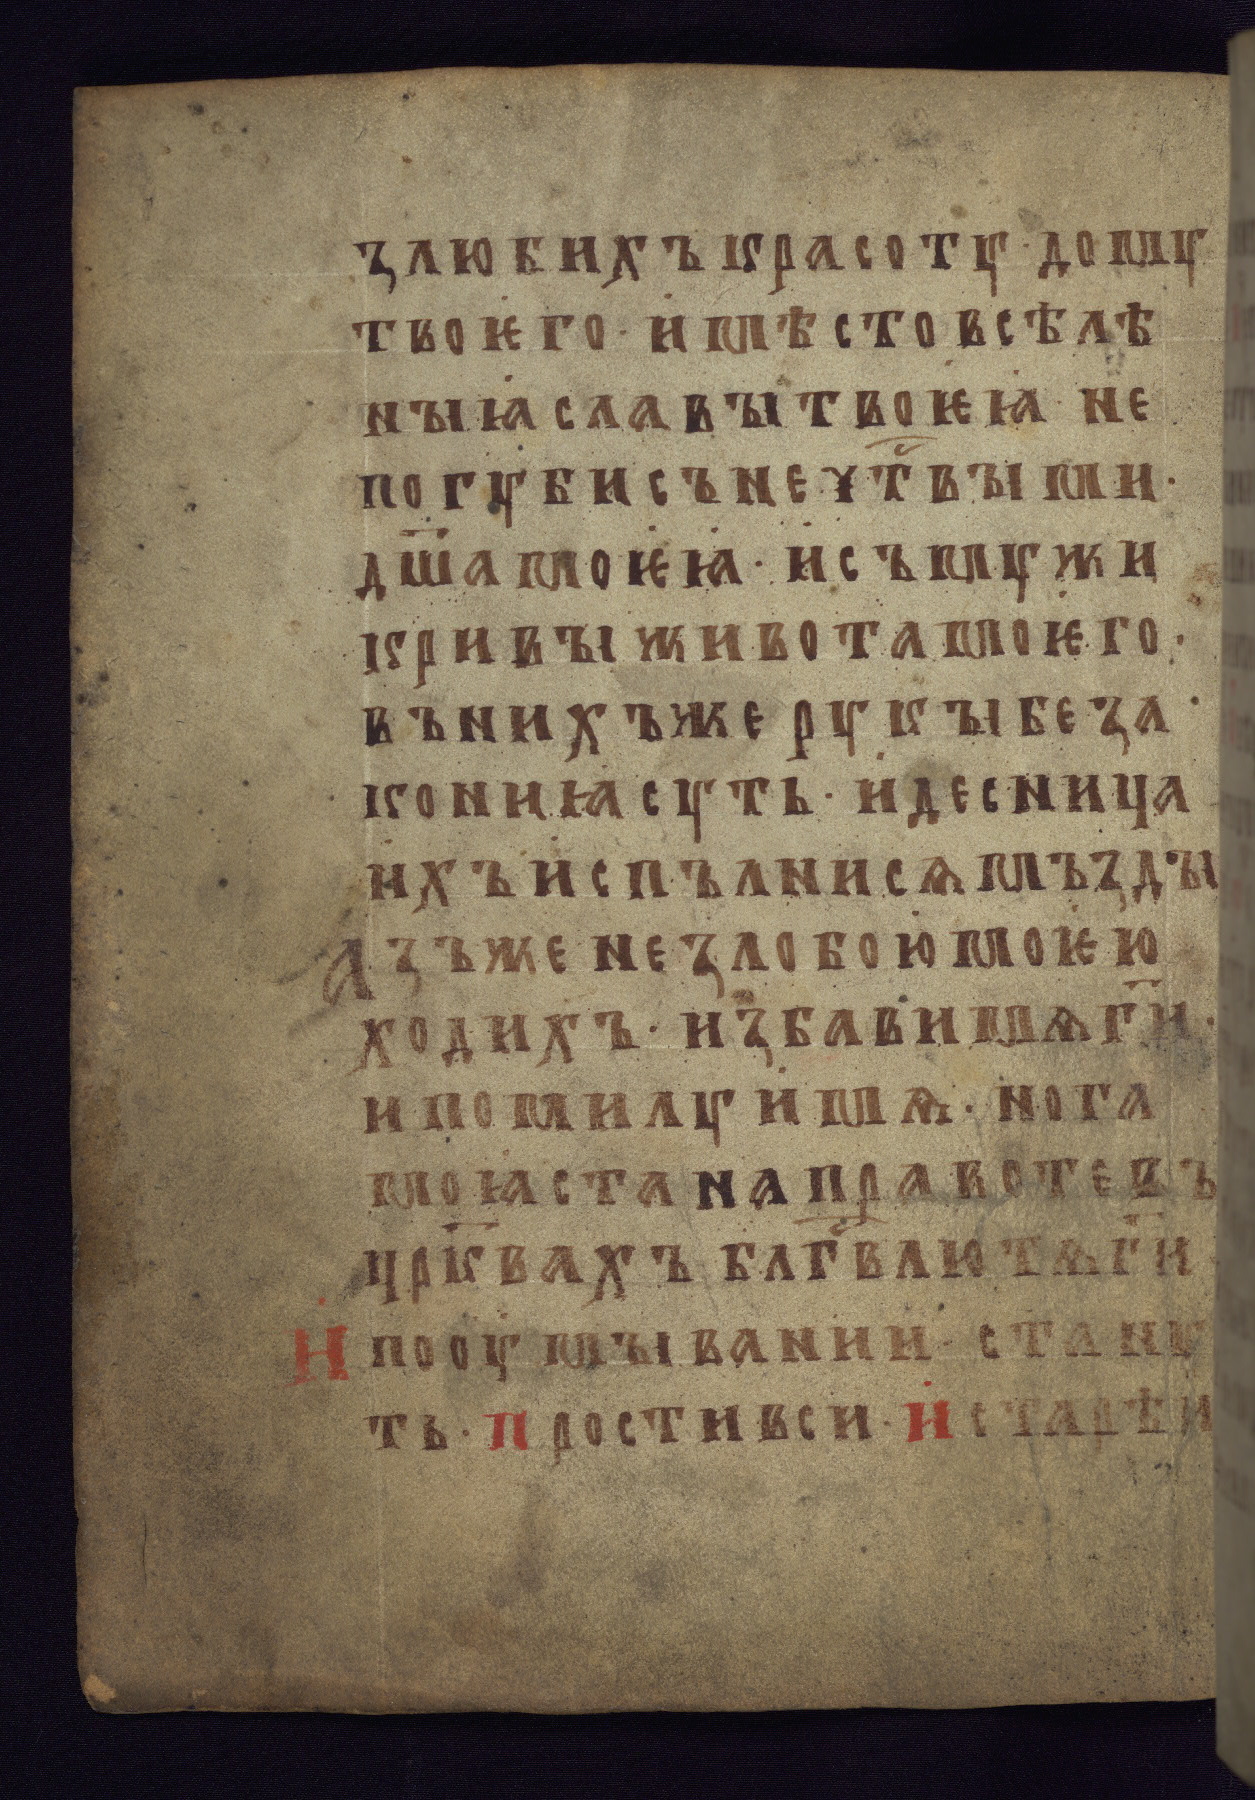 ꙁлюбихъ красотꙋ· домꙋ
твоѥго· и мѣсто всѣлѣ
ныꙗ славы твоѥꙗ· не
погꙋби съ неч҇твыми·
дш҃а моѥꙗ· и съ мꙋжи
кривы живота моѥго·
въ нихъже рꙋкы беꙁа
кониꙗ сꙋть· и десница
ихъ испълнисѧ мъꙁды
Аꙁъ же неꙁлобою моѥю
ходихъ· иꙁбави мѧ г҃и·
и помилꙋи мѧ· нога
моꙗ ста на правоте въ
цр҃квахъ блг҇влю тѧ г҃и
И по оꙋмывании станꙋ
ть· прости вси· и старѣи